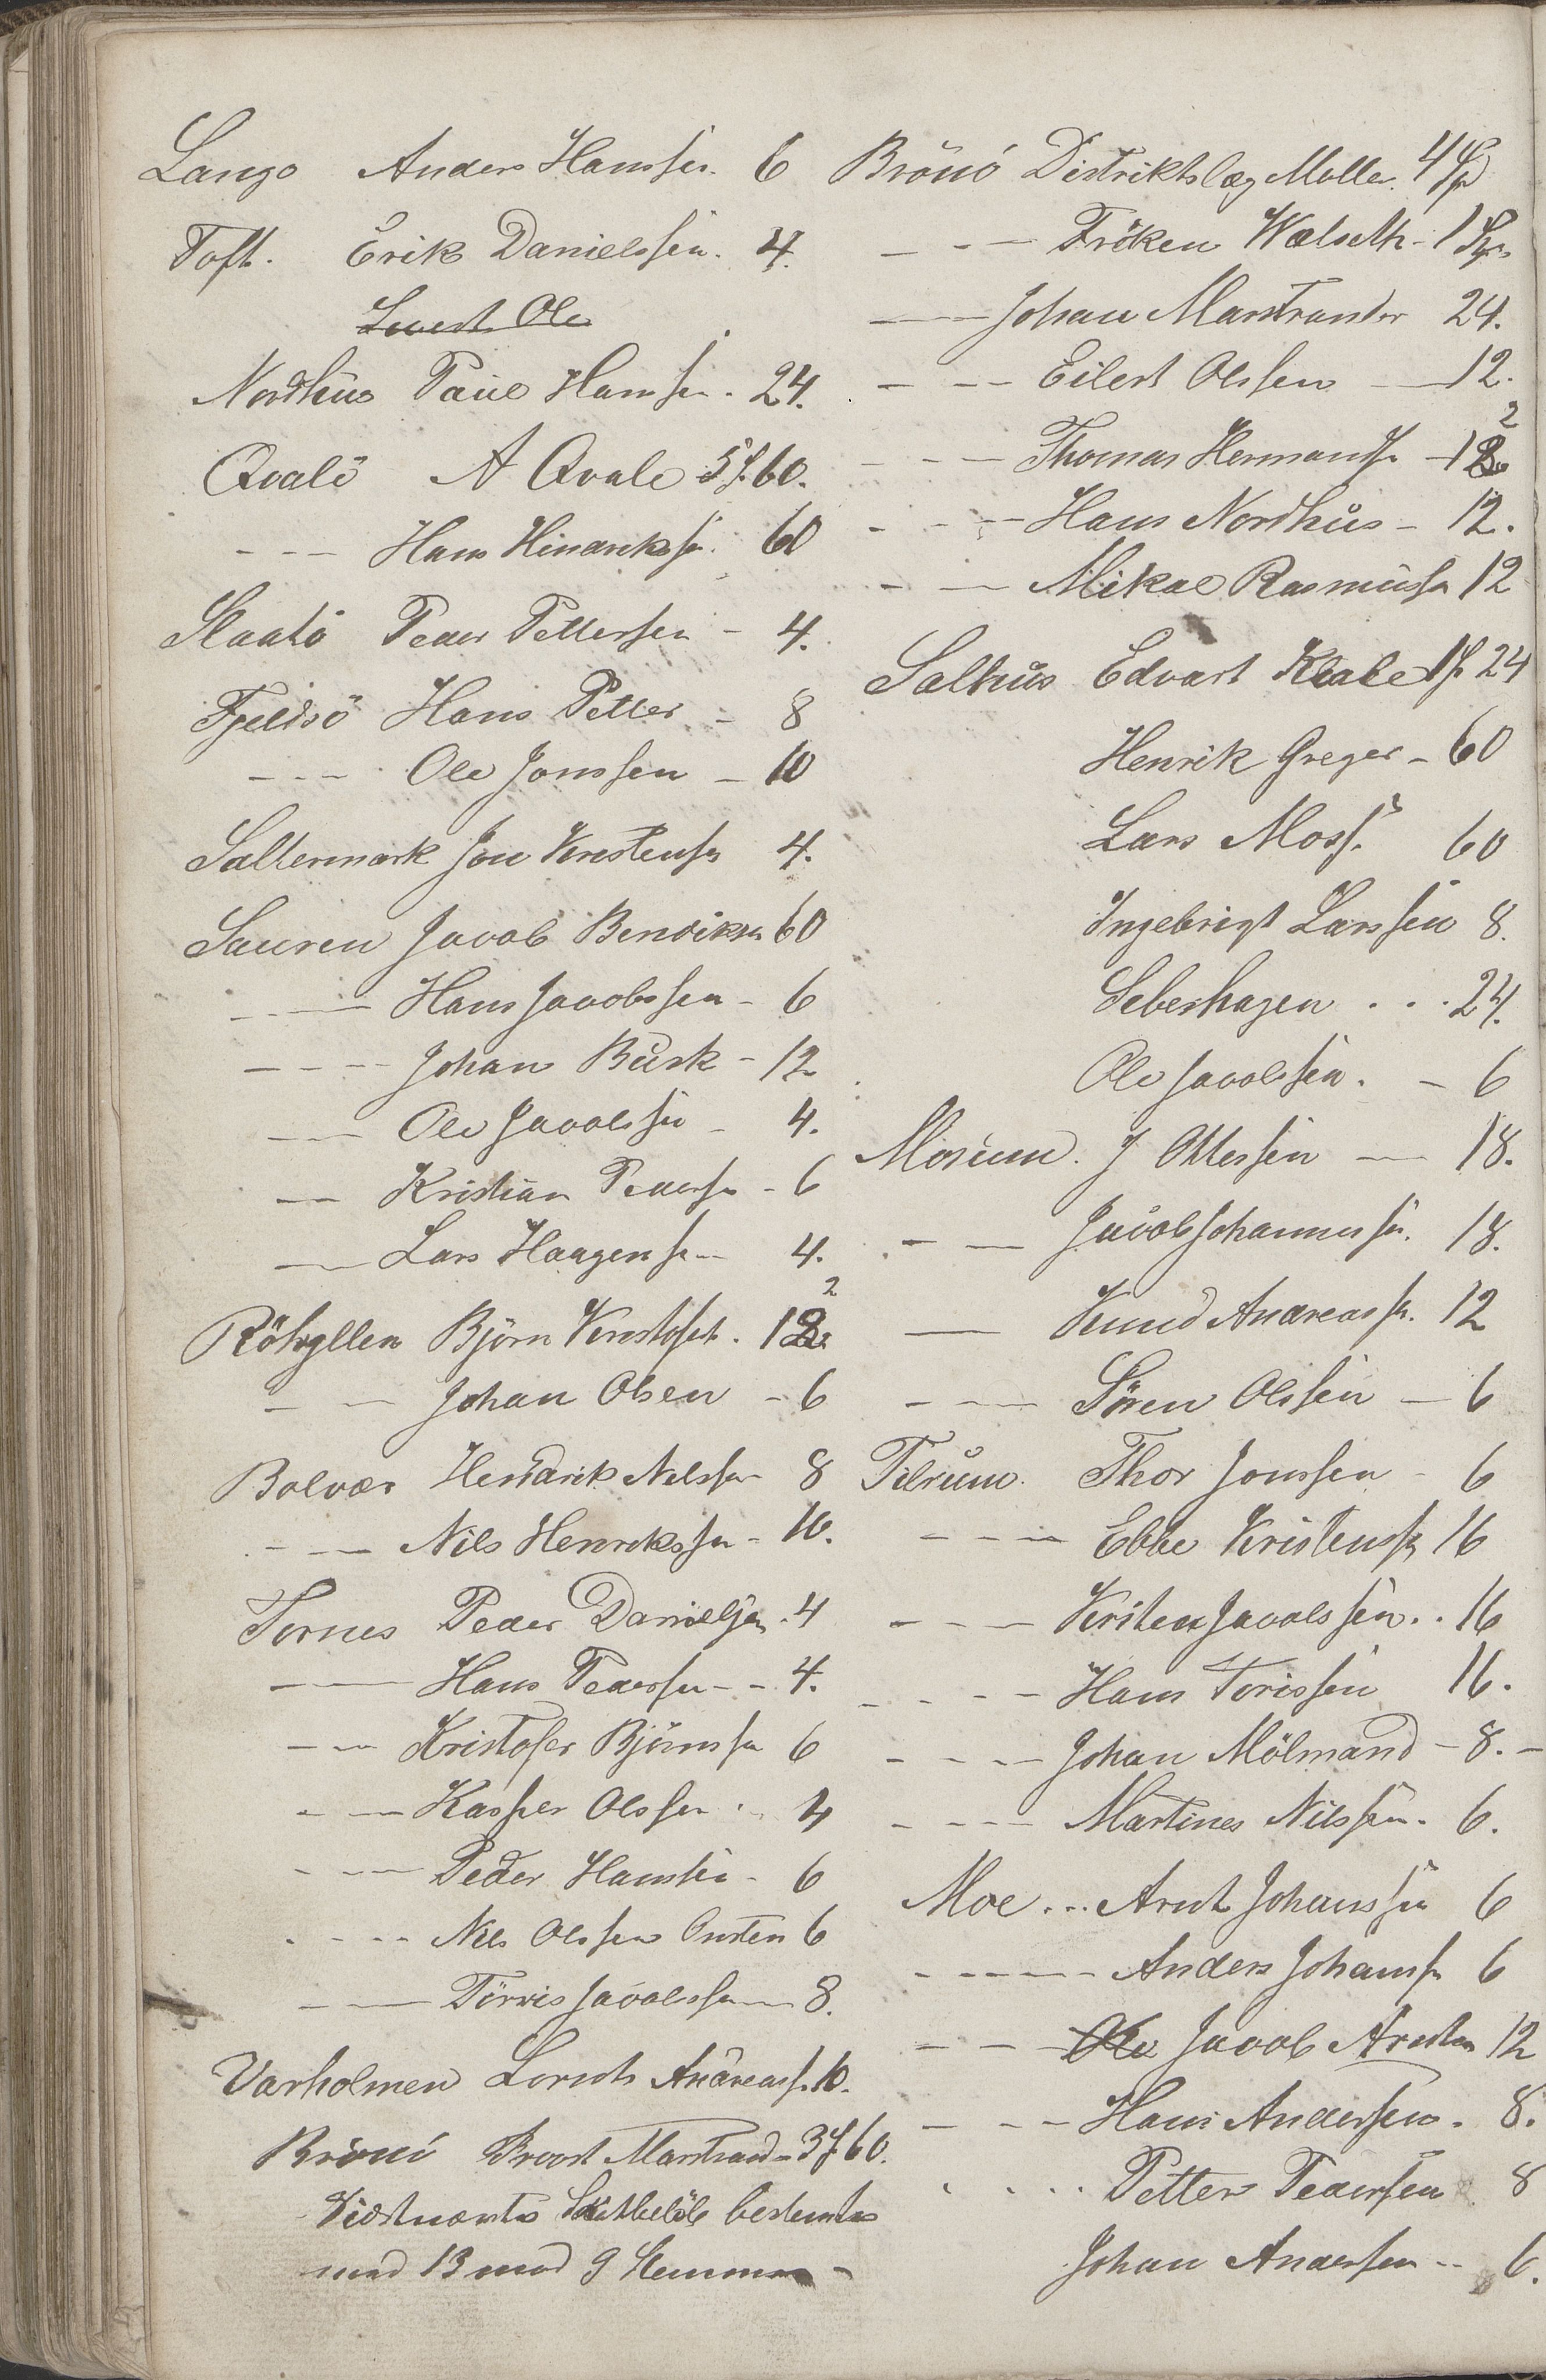 Lango Anders Hanssen. 6
Toft. Erik Danielssen. 4.
Ole
Nordhus Paul Hanssen. 24.
Qvalö A Qvale 5 f 60.
- - - Hans Hindrikssen. 60
Slaatö Peder Pettersen - 4.
Fjeldsö Hans Petter - 8
- - - Ole Jonssen - 10
Saltermark Jon Kristenssen 4.
Sauren Jacob Bendikssen 60
- - - Hans Jacobssen - 6
- - - Johan Busk - 12
- - - Ole Jacobssen - 4.
- - Kristian Pedersen - 6
- - Lars Haagensen 4.
Röhyllen Björn Kristofers. 12 2
- - Johan Olsen - 6
Bolvær Hendrik Nilssen 8
- - - Nils Henrikssen - 10.
Tornes Peder Danielsen. 4
- - Hans Pederssen - - 4.
- - Kristofer Björnssen 6
- - Kasper Olssen - 4
- - - Peder Hanssen - 6
- - - - Nils Olssen 6
- - - Törris Jacobssen 8.
Varholmen Andreass. 10.
Brönö Provst Marstrand - 3 f 60.
Skatbelöb bestemtes
med 13 mod 9 Stemmer -
Brönö Distriktslæg Møller. 4 Sp
- - - Fröken Wælseth - 1 Sp
- - Johan Marstrander 24.
- - - Eilert Olssen - 12.
- - - Thomas Hermandss - 12 2
- - - Hans Nordhus - 12.
- - - Mikal Rasmussn 12
Salhus Edvart Klæbe 1 f 24
Henrik Greger - 60
Lars Moss. 60
Ingebrigt Larssen 8.
Sebershagen . . . 24.
Ole Jacobssen. - 6
Mosum. J Ottessen - 18.
- - Jacob Johannessen. 18.
- Knud Andreass. 12
- - - Sören Olssen - 6
Tilrum. Thor Jonssen - 6
- - - Ebbe Kristenss 16
- - - Kristen Jacobssen. . 16
- - - - Hans Torissen 16.
- - - - Johan Mölmand - 8. -
- - - - Martines Nilssen. 6.
Moe . . . Arnt Johanssen 6
- - - - - Anders Johanssn 6
- - - Ole Jacob Arntsen 12
- - - Hans Anderssen. 8.
. . . . Petter Pedersen 8
Johan Anderssen - - 6.